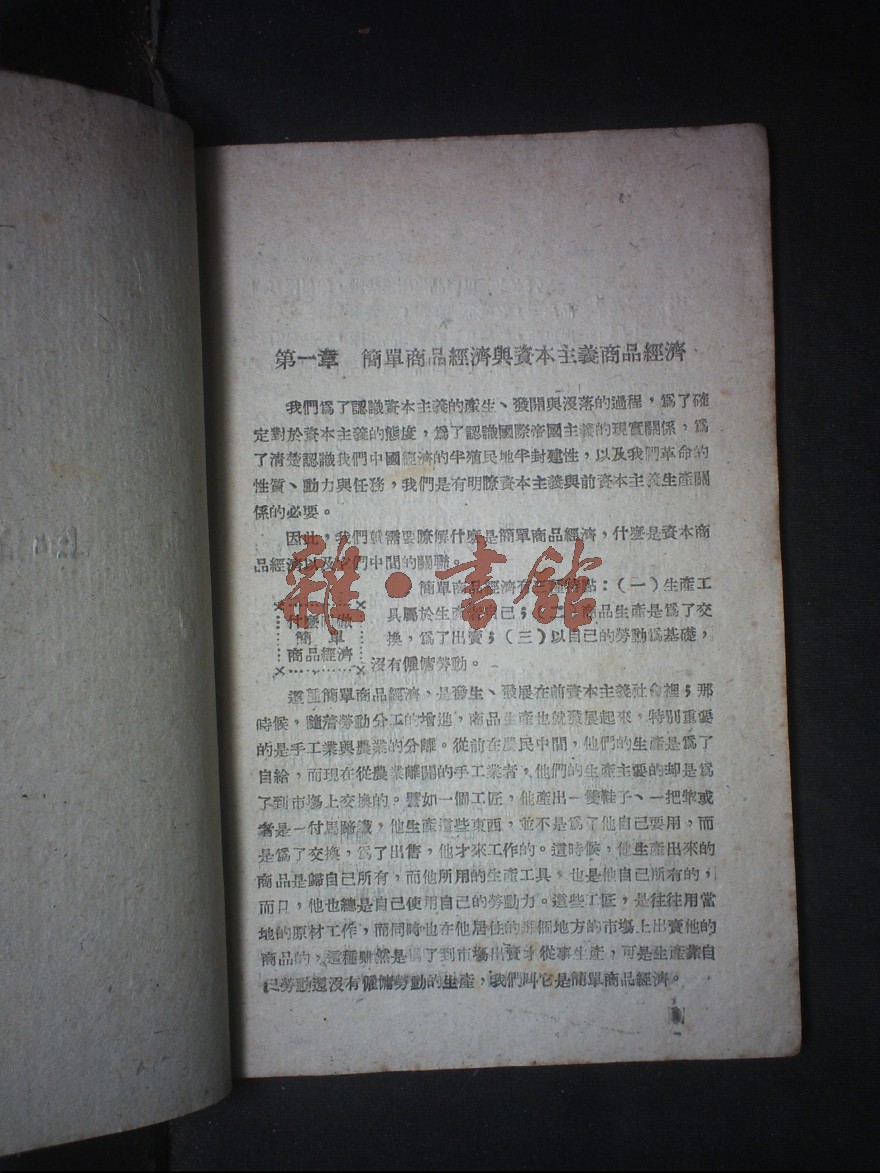 第一章　簡單商品經濟與資本主義商品經濟
我們爲了認識資本主義的產生、發展與沒落的過程，爲了確
定對於資本主義的態度，爲了認識國際帝國主義的現實關係，爲
了清楚認識我們中國經濟的半殖民地半封建性，以及我們革命的
性質、動力與任務，我們是有明瞭資本主義與前資本主義生產關
係的必要。
因此，我們就需要瞭解什麼是簡單商品經濟，什麼是資本商
品經濟以及它們中間的關聯。
什麼叫做
簡單
商品經濟
簡單商品經濟有三種特點：（一）生產工
具屬於生產者自己；（二）商品生產是爲了交
換，爲了出賣；（三）以自己的勞動爲基礎，
沒有僱傭勞動。
這種簡單商品經濟，是發生、發展在前資本主義社會裡；那
時候，隨着勞動分工的增進，商品生產也就發展起來，特別重要
的是手工業與農業的分離。從前在農民中間，他們的生產是爲了
自給，而現在從農業離開的手工業者，他們的生產主要的却是爲
了到市場上交換的。譬如一個工匠，他產出一雙鞋子、一把犂或
者是一付馬蹄鐵，他生產這些東西，並不是爲了他自己要用，而
是爲了交換，爲了出售，他才來工作的。這時候，他生產出來的
商品是歸自己所有，而他所用的生產工具，也是他自己所有的，
而且，他也總是自己使用自己的勞動力。這些工匠，是往往用當
地的原材工作，而同時也在他居住的那個地方的市場上出賣他的
商品的，這種雖然是爲了到市場出賣才從事生產，可是生產靠自
己勞動還沒有僱傭勞動的生產，我們叫它是簡單商品經濟。
雜·書舘